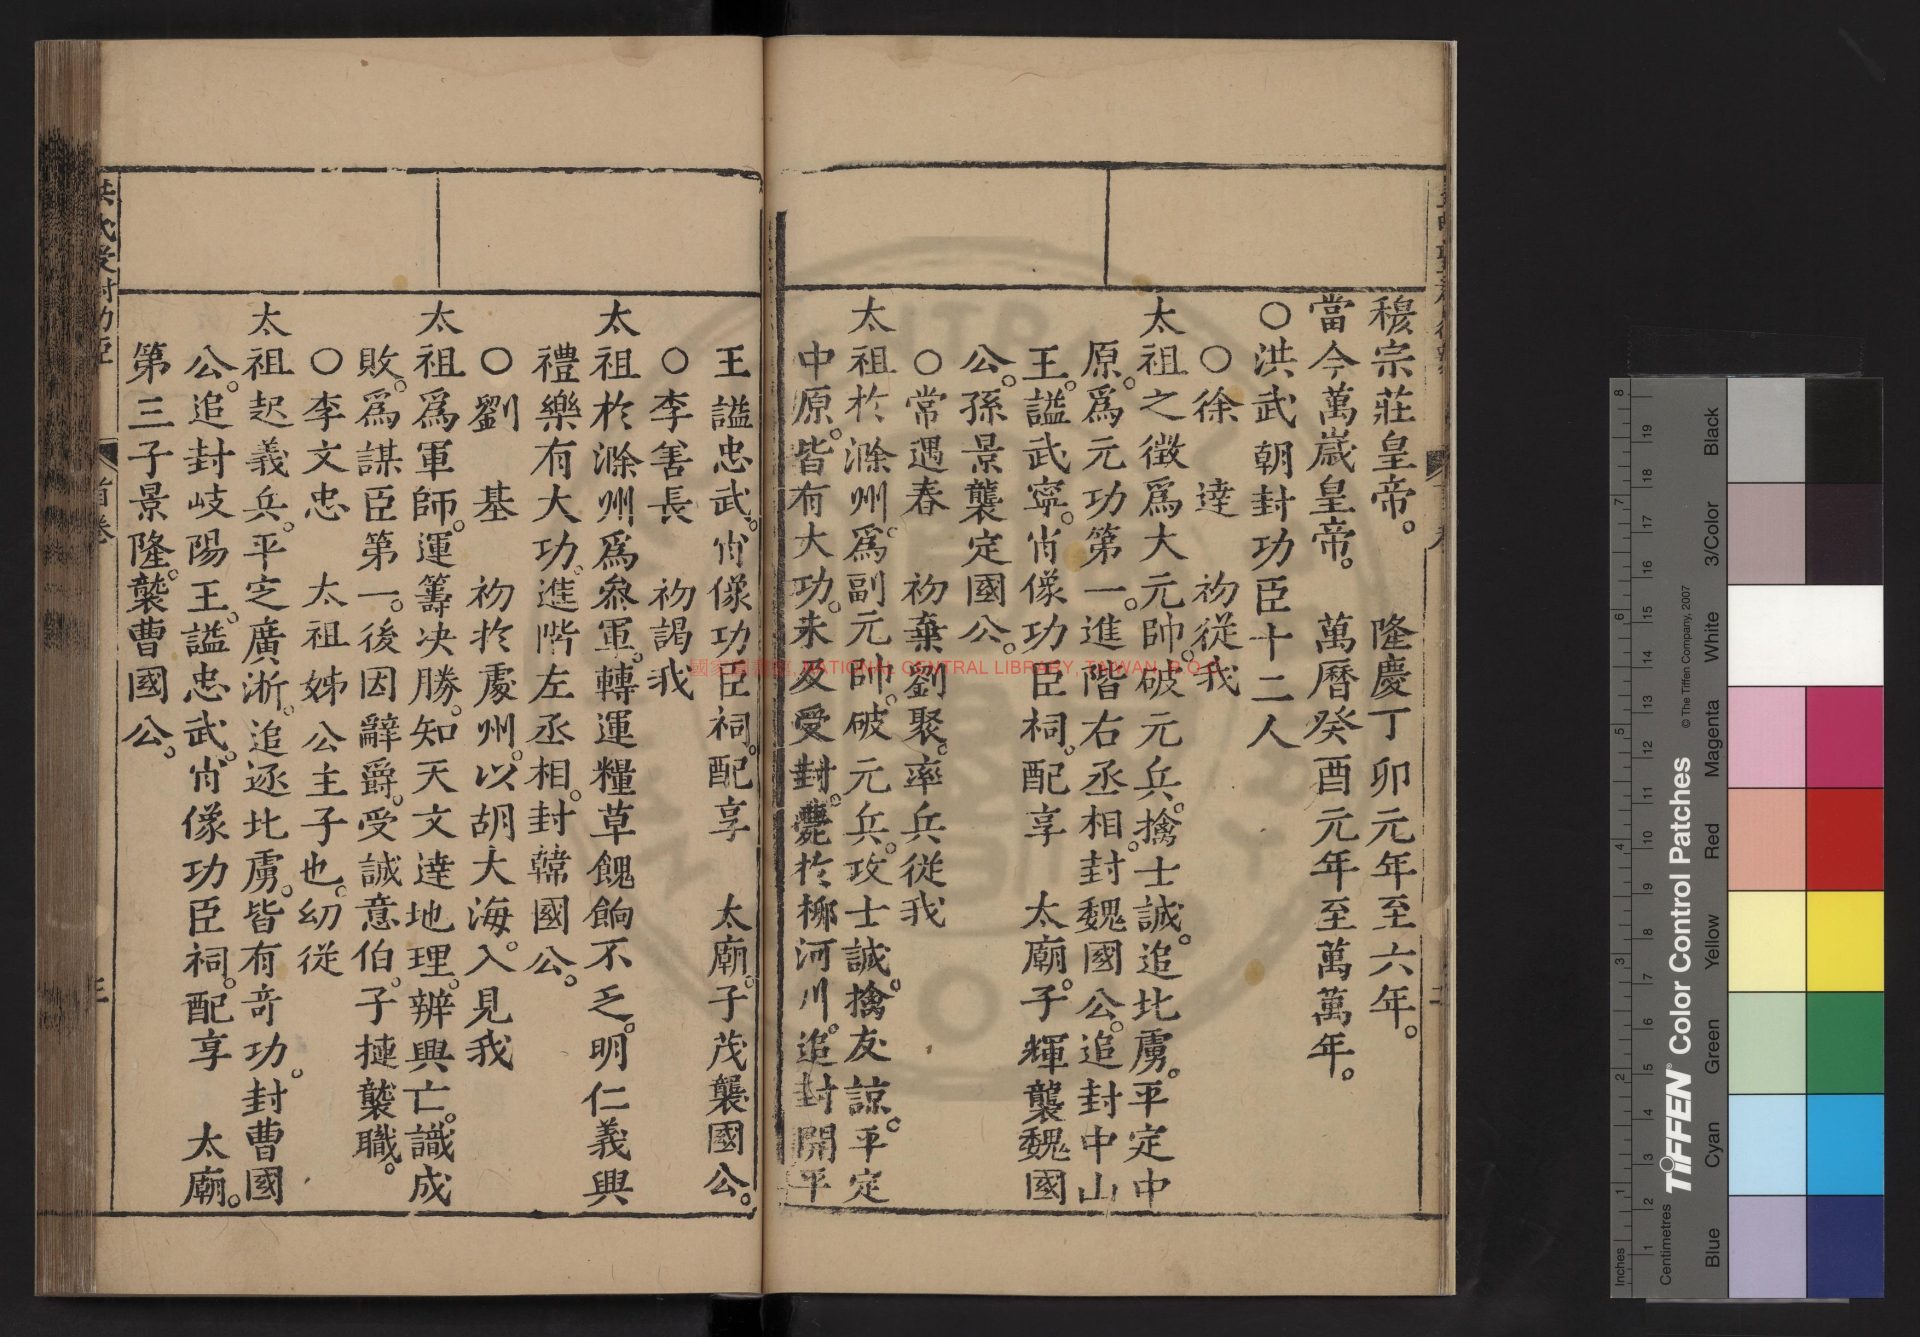 穆宗莊皇帝。　隆慶丁卯元年至六年。
當今萬歲皇帝。　萬曆癸酉元年至萬萬年。
○洪武朝封功臣十二人
○徐　達　初從我
太祖之徵爲大元帥。破元兵。擒士誠。追北虜。平定中
原。爲元功第一。進階右丞相。封魏國公。追封中山
王。謚武寧。肖像功臣祠。配享　太廟。子輝襲魏國
公。孫景襲定國公。
○常遇春　初棄劉聚。率兵從我
太祖於滁州。爲副元帥。破元兵。攻士誠。擒友諒。平定
中原。皆有大功。未及受封。薨於柳河川。追封開平
王謚忠武。肖像功臣祠。配享　太廟。子茂襲國公。
○李善長　初謁我
太祖於滁州爲叅軍。轉運糧草餽餉不乏。明仁義興
禮樂有大功。進階左丞相。封韓國公。
○劉　基　初於處州。以胡大海。入見我
太祖爲軍師。運籌决勝。知天文達地理。辨興亡。識成
敗。爲謀臣第一。後因辭爵。受誠意伯。子㨗襲職。
○李文忠　太祖姊公主子也。幼從
太祖起義兵。平定廣浙。追逐北虜。皆有竒功。封曹國
公。追封岐陽王。謚忠武。肖像功臣祠。配享　太廟。
第三子景隆。襲曹國公。
洪武受封功臣　首卷　三
國家圖書館, NATIONAL CENTRAL LIBRARY, TAIWAN, R.O.C
Inches 1 2 3 4 5 6 7 8
Centimetres 1 2 3 4 5 6 7 8 9 10 11 12 13 14 15 16 17 18 19
TIFFEN® Color Control Patches
© The Tiffen Company, 2007
Blue Cyan Green Yellow Red Magenta White 3/Color Black